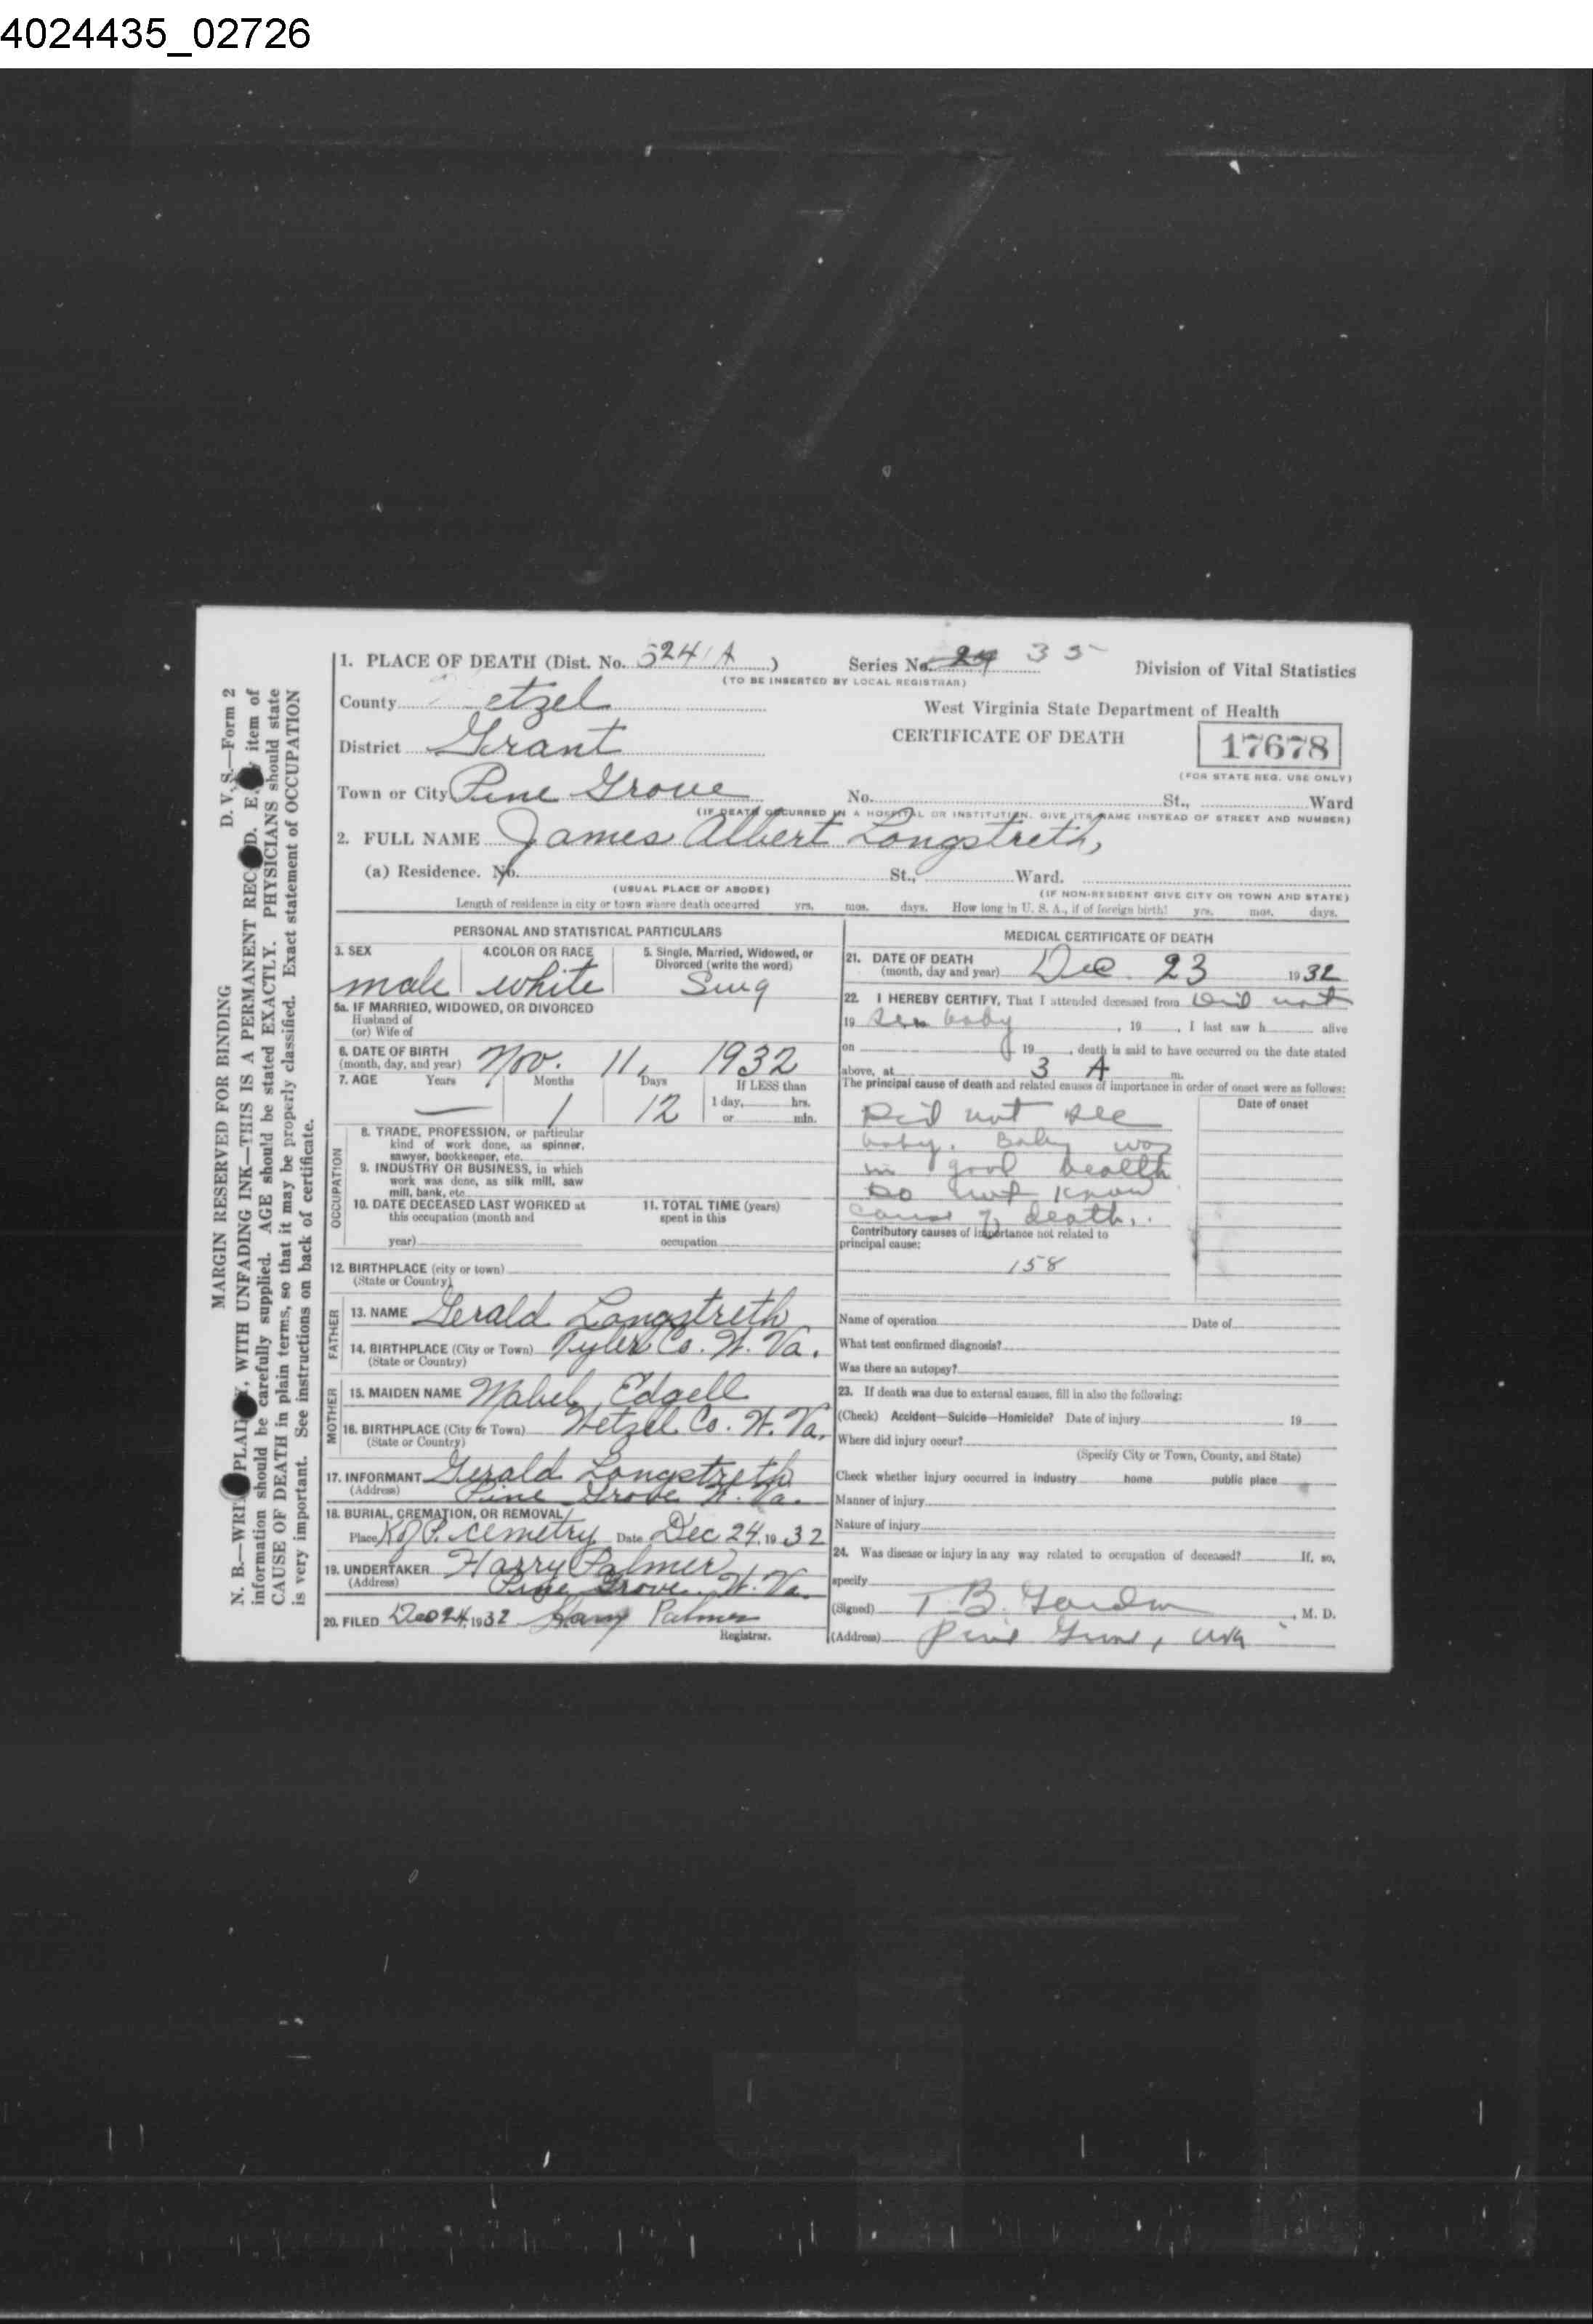 4024435_02726
1. PLACE OF DEATH (Dist. No. 524 A) Series No. 24 35 Division of Vital Statistics
(TO BE INSERTED BY LOCAL REGISTRAR)
County etzel
West Virginia State Department of Health
District Grant
CERTIFICATE OF DEATH 17678
(FOR STATE REG. USE ONLY)
Town or City Pine Grove No. St., Ward
(IF DEATH OCCURRED IN A HOSPITAL OR INSTITUTION, GIVE ITS NAME INSTEAD OF STREET AND NUMBER)
2. FULL NAME James Albert Longstreth,
(a) Residence. No. St., Ward.
(USUAL PLACE OF ABODE) (IF NON-RESIDENT GIVE CITY OR TOWN AND STATE)
Length of residence in city or town where death occurred yrs. mos. days. How long in U. S. A., if of foreign birth? yrs. mos. days.
PERSONAL AND STATISTICAL PARTICULARS
3. SEX 4. COLOR OR RACE 5. Single, Married, Widowed, or
Divorced (write the word)
male white Sing
5a. IF MARRIED, WIDOWED, OR DIVORCED
Husband of
(or) Wife of
6. DATE OF BIRTH
(month, day, and year) Nov. 11, 1932
7. AGE Years Months Days If LESS than
— 1 12 1 day, hrs.
or min.
OCCUPATION
8. TRADE, PROFESSION, or particular
kind of work done, as spinner,
sawyer, bookkeeper, etc.
9. INDUSTRY OR BUSINESS, in which
work was done, as silk mill, saw
mill, bank, etc.
10. DATE DECEASED LAST WORKED at 11. TOTAL TIME (years)
this occupation (month and spent in this
year) occupation
12. BIRTHPLACE (city or town)
(State or Country)
FATHER
13. NAME Gerald Longstreth
14. BIRTHPLACE (City or Town) Tyler Co. W. Va.
(State or Country)
MOTHER
15. MAIDEN NAME Mabel Edgell
16. BIRTHPLACE (City or Town) Wetzel Co. W. Va.
(State or Country)
17. INFORMANT Gerald Longstreth
(Address) Pine Grove W. Va.
18. BURIAL, CREMATION, OR REMOVAL
Place K of P. cemetry Date Dec 24, 1932
19. UNDERTAKER Harry Palmer
(Address) Pine Grove W. Va.
20. FILED Dec 24, 1932 Harry Palmer
Registrar.
MEDICAL CERTIFICATE OF DEATH
21. DATE OF DEATH
(month, day and year) Dec 23 1932
22. I HEREBY CERTIFY, That I attended deceased from Did not
19 see baby, 19, I last saw h alive
on 19, death is said to have occurred on the date stated
above, at 3 A m.
The principal cause of death and related causes of importance in order of onset were as follows:
Date of onset
Did not see
baby. Baby was
in good health
Do not know
cause of death.
Contributory causes of importance not related to
principal cause:
158
Name of operation Date of
What test confirmed diagnosis?
Was there an autopsy?
23. If death was due to external causes, fill in also the following:
(Check) Accident—Suicide—Homicide? Date of injury 19
Where did injury occur?
(Specify City or Town, County, and State)
Check whether injury occurred in industry home public place
Manner of injury
Nature of injury
24. Was disease or injury in any way related to occupation of deceased? If, so,
specify
(Signed) T. B. M. D.
(Address) Pine Grove, WVa
D. V. S.—Form 2
MARGIN RESERVED FOR BINDING
N. B.—WRI PLAI, WITH UNFADING INK—THIS IS A PERMANENT REC D. E item of
information should be carefully supplied. AGE should be stated EXACTLY. PHYSICIANS should state
CAUSE OF DEATH in plain terms, so that it may be properly classified. Exact statement of OCCUPATION
is very important. See instructions on back of certificate.